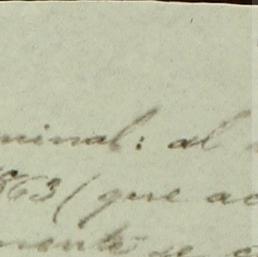 minal: al
1863 (que ac
mente se c